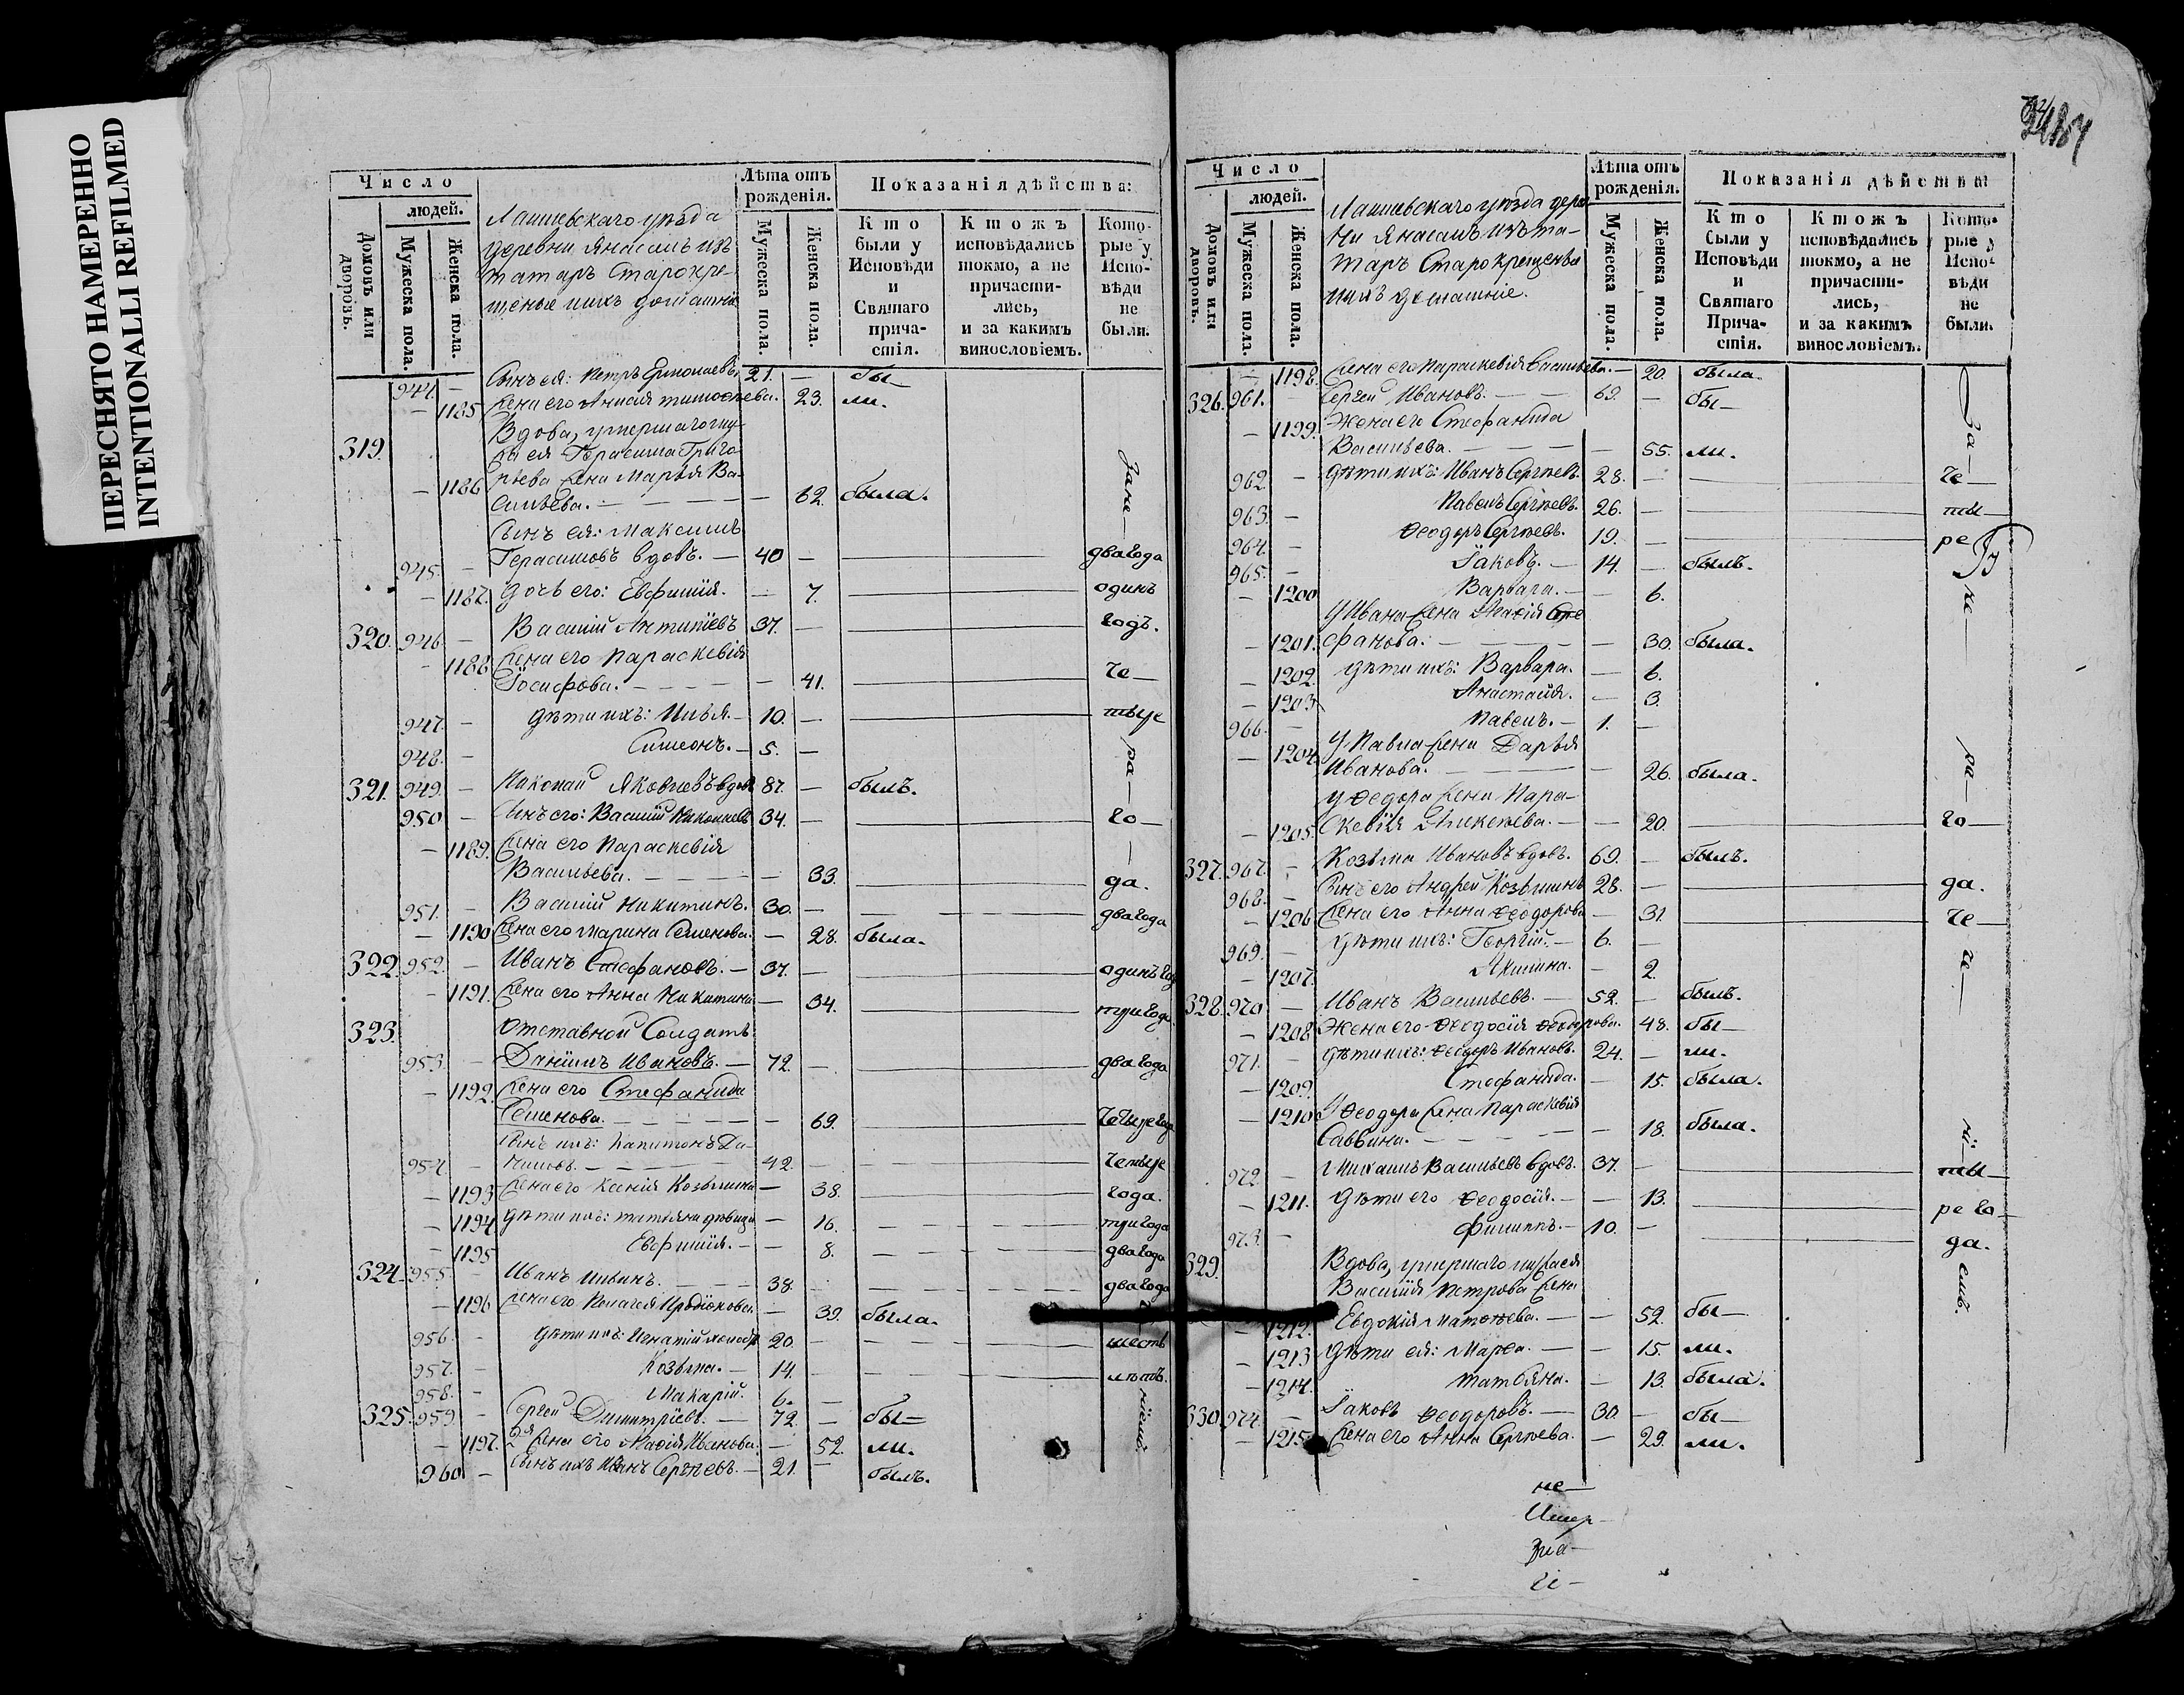 ПЕРЕСНЯТО НАМЕРЕННО
INTENTIONALLI REFILMED
Число
людей.
Домовъ или дворовъ.
Мужеска пола.
Женска пола.
Лаишевскаго уѣзда
деревни Янасалъ изъ
татаръ Старокре-
щеные и ихъ домашніе
Лѣта отъ рожденія.
Мужеска пола.
Женска пола.
Показанія дѣйства:
Кто были у Исповѣди и Святаго причастія.
Ктожъ исповѣдались токмо, а не причастились, и за какимъ винословіемъ.
Которые у Исповѣди не были.
944. — Сынъ ея: Петръ Ермолаевъ, 21. — бы—
— 1185 Жена его Анисія Тимоѳеева. 23. ли.
319. Вдова, умершаго му-
жа ея Герасима Григо-
— 1186 рьева жена Марья Ва-
сильева. — 62. была.
Сынъ ея: Максимъ
945. — Герасимовъ вдовъ. — 40 — два года
— 1187. Дочь его: Евфимія. — 7. один
320. 946. — Василій Антипіевъ 37. — годъ.
— 1188 Жена его Параскевія
Іосифова. — 41. че—
947. — Дѣти ихъ: Илья. — 10. — тыре
948. — Симеонъ. — 5. —
321. 949. — Николай Яковлевъ вдовъ 87. — былъ.
950 — Сынъ его: Василій Николаевъ 34. — го—
— 1189. Жена его Параскевія
Васильева. — 33. да.
951. — Василій Никитинъ. 30. — два года
— 1190 Жена его Марина Семенова. — 28. была.
322. 952. — Иванъ Стефановъ. — 37. — одинъ год
— 1191. Жена его Анна Никитина — 34. три года
323. Отставной Солдатъ
953. — Даніилъ Ивановъ. — 72. — два года
— 1192. Жена его Стефанида
Семенова. — 69. четыре года
Сынъ ихъ: Капитонъ Да-
954. — ниловъ. — 42. — четыре
— 1193 Жена его Ксенія Козьмина — 38. года.
— 1194 Дѣти ихъ: Татьяна дѣвица — 16. три года
— 1195 Евфимія. — 8. два года
324. 955. — Иванъ Ильинъ. — 38. два года
— 1196 Жена его Пелагея Иродіонова — 39. была.
956. — Дѣти ихъ: Игнатій холост 20. — шесть
957. — Козьма. — 14. — лѣтъ.
958. — Макарій. 6. —
325. 959. — Сергей Димитріевъ. — 72. — бы—
— 1197. 2я Жена его Марія Иванова. — 52. ли.
960 — Сынъ ихъ Иванъ Сергѣевъ. — 21. — былъ.
Число
людей.
Домовъ или дворовъ.
Мужеска пола.
Женска пола.
Лаишевскаго уѣзда дерев
ни Янасалъ изъ та-
таръ Старокрещены
и ихъ домашніе.
Лѣта отъ рожденія.
Мужеска пола.
Женска пола.
Показанія дѣйства
Кто были у Исповѣди и Святаго Причастія.
Ктожъ исповѣдались токмо, а не причастились, и за какимъ винословіемъ.
Которые у Исповѣди не были.
— 1198. Жена его Параскевія Васильева. — 20. была.
326. 961. — Сергей Ивановъ. — 69. — бы—
— 1199. Жена его Стефанида
Васильева. — 55. ли.
962. — Дѣти ихъ: Иванъ Сергѣевъ. 28. — че—
963. — Павелъ Сергѣевъ. 26. — ты—
964. — Ѳеодоръ Сергѣевъ. 19. — ре
965. — Іаковъ. — 14. — былъ.
— 1200 Варвара. — 6.
У Ивана жена
— 1201. фанова. — 30. была.
— 1202. Дѣти ихъ: Варвара. — 6.
— 1203 Анастасія. — 3.
966. — Павелъ. — 1. —
— 1204. У Павла жена Дарья
Иванова. — 26. была.
У Ѳедора жена Пара-
— 1205. скевія Алексѣева. — 20. го—
327. 967. — Козьма Ивановъ вдовъ. 69. — былъ.
968. — Сынъ его Андрей Козьминъ 28. — да.
— 1206 Жена его Анна Ѳеодорова — 31. че—
969. — Дѣти ихъ: Георгій. — 6. —
— 1207. Акилина. — 2.
328. 970 — Иванъ Васильевъ. — 52. — былъ.
— 1208. Жена его Ѳеодосія Ѳеодорова. 48. бы—
971. — Дѣти ихъ: Ѳеодоръ Ивановъ. 24. — ли.
— 1209. Стефанида. — 15. была.
— 1210 У Ѳеодора жена Параскевія
Саввина. — 18. была.
972. — Михаилъ Васильевъ вдовъ. 37. — ты—
— 1211. Дѣти его Ѳеодосія. — 13. ре го—
973. — Филиппъ. — 10. — да.
329. Вдова, умершаго мужа ея
Василія Петрова жена
— 1212. Евдокія Матвѣева. — 52. бы—
— 1213 Дѣти ея: Марѳа. — 15. ли.
— 1214. Татьяна. — 13. была.
330. 974. — Іаковъ Ѳеодоровъ. — 30. — бы—
— 1215 Жена его Анна Сергѣева. — 29. ли.